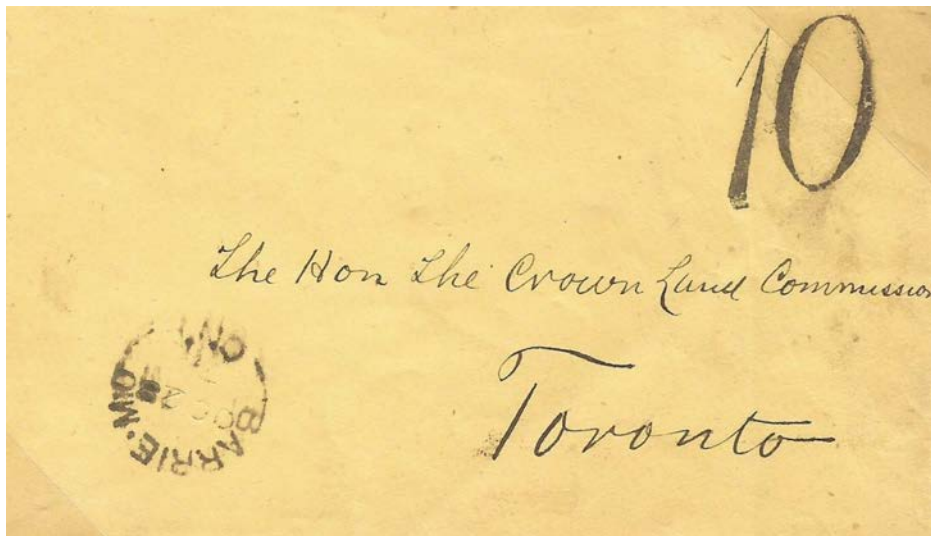 10
The Hon The Crown Land Commission
Toronto
BARRIE
ONT